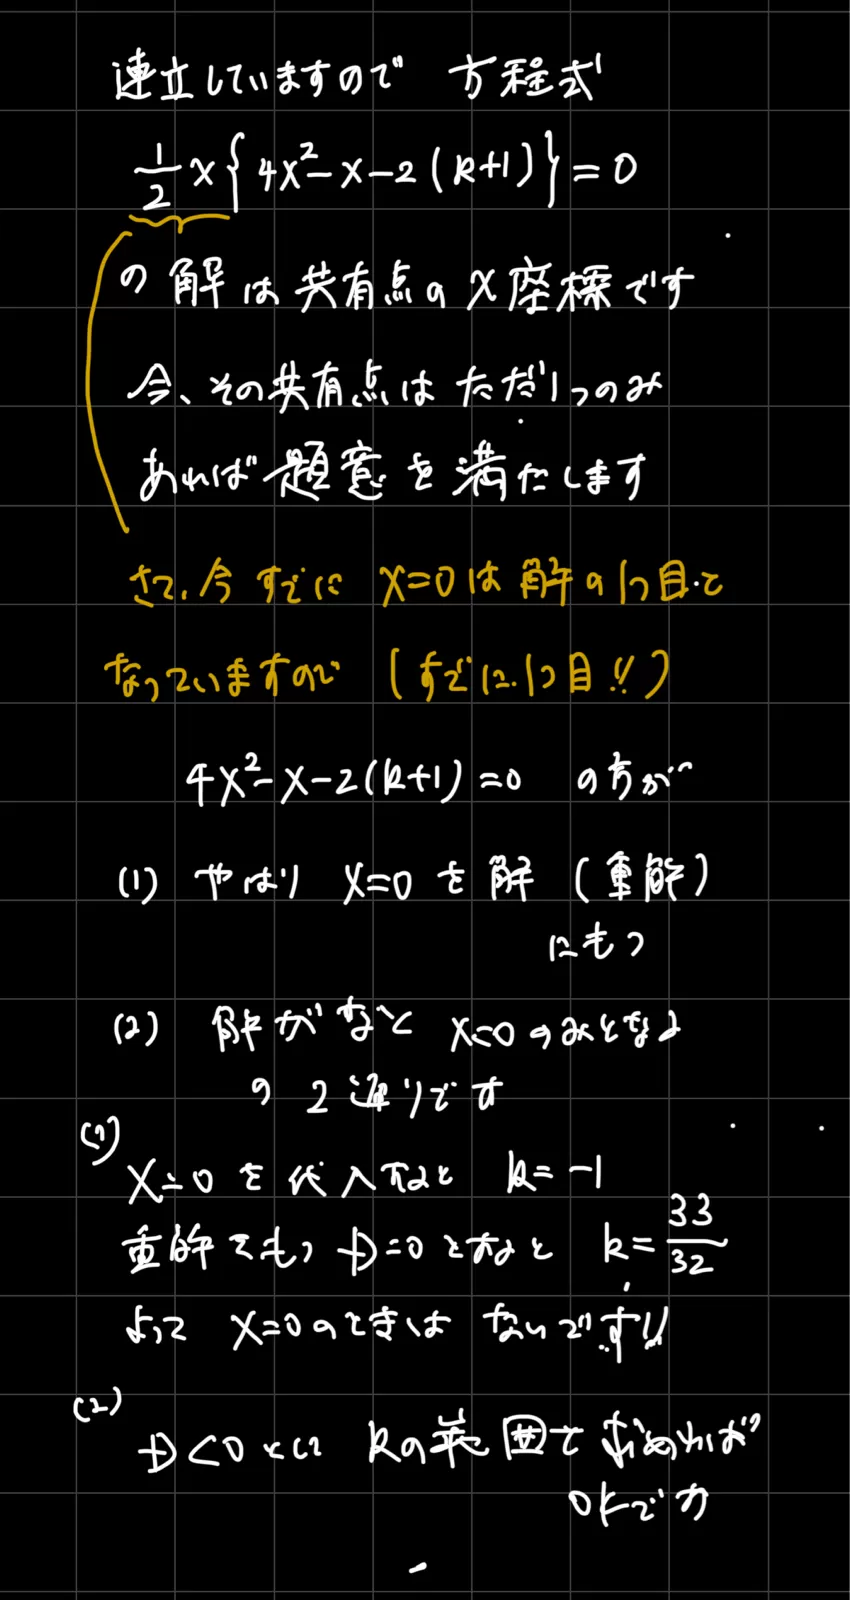 連立していますので 方程式
1/2 x{4x²-x-2(k+1)}=0
の解は共有点のx座標です
今、その共有点はただ1つのみ
あれば題意を満たします
さて、今すでに x=0は解の1つ目と
なっていますので (すでに1つ目!!)
4x²-x-2(k+1)=0 の方が
(1) やはり x=0を解(重解)
にもつ
(2) 解がなく x=0のみとなる
の2通りです
(1)
x=0を代入すると k=-1
重解をもつ D=0とすると k=33/32
よって x=0のときはないです!!
(2)
D<0とし kの範囲を求めれば
OKです